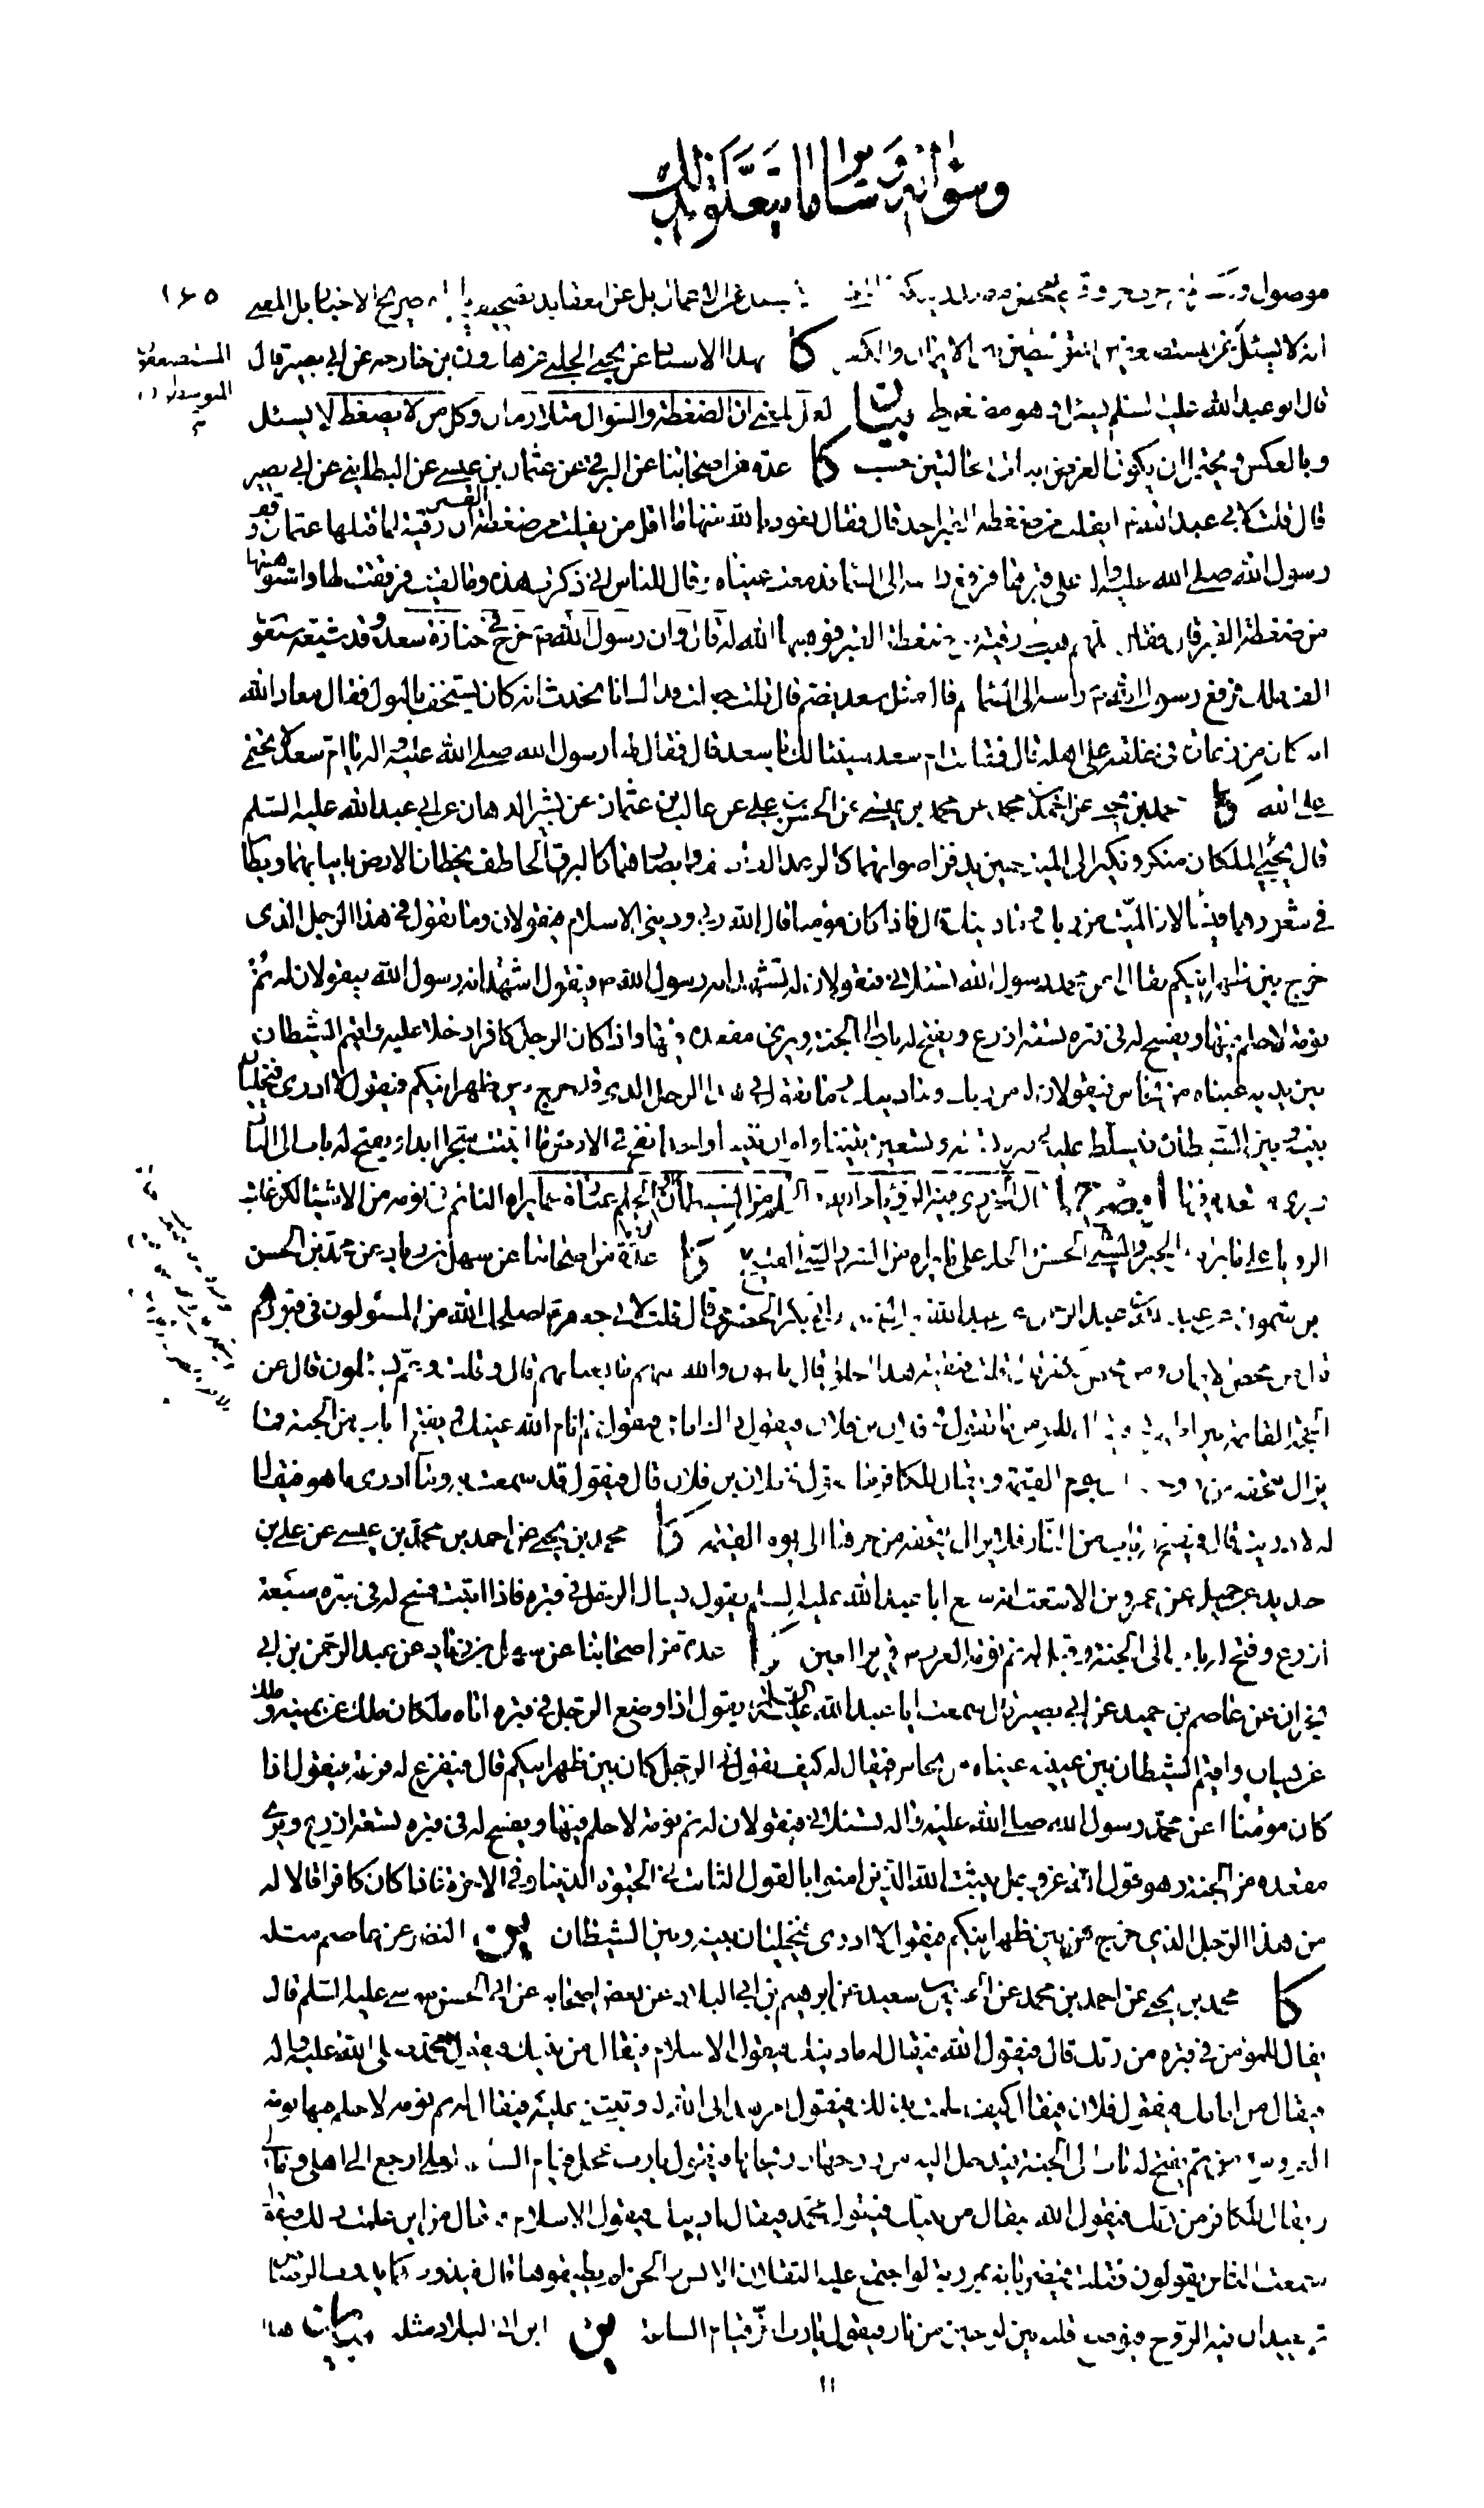 وسؤاله وسائر ما يتعلق بذلك
١٦٥
انه لا يسئل عن المستضعفين المتوسطين بين الايمان والكفر كا بهذا الاسناد عن يحيى الحلبي عن هارون بن خارجه عن ابي بصير قال
المستضعفون
المتوسطون
قال ابو عبد الله عليه السلم يسئل وهو مضغوط بيان لعل المعنى ان الضغطة والسؤال متلازمان وكل من لا يضغط لا يسئل
وبالعكس ويحتمل ان يكون الغرض اثبات الحالتين حسب كا عدة من اصحابنا عن البرقي عن عثمان بن عيسى عن البطايني عن ابي بصير
قال قلت لابي عبد الله ايفلت من ضغطة القبر احد قال فقال نعوذ بالله منها ما اقل من يفلت من ضغطة القبر ان رقية لما قتلها عثمان وقف
رسول الله صلى الله عليه واله على قبرها فرفع راسه الى السماء فدمعت عيناه وقال للناس اني ذكرت هذه وما لقيت فرققت لها واستوهبتها
من ضغطة القبر قال فقال اللهم هب لي رقية من ضغطة القبر فوهبها الله له قال وان رسول الله خرج في جنازة سعد وقد شيعه سبعون
الف ملك فرفع رسول الله راسه الى السماء ثم قال مثل سعد يضم قال قلت جعلت فداك انا نحدث انه كان يستخف بالبول فقال معاذ الله
انه كان من زعارة في خلقه على اهله قال فقالت ام سعد هنيئا لك يا سعد قال فقال لها رسول الله صلى الله عليه واله يا ام سعد لا تحتمي
على الله كا محمد بن يحيى عن احمد بن محمد عن محمد بن عيسى عن الحسن بن علي عن غالب بن عثمان عن بشير الدهان عن ابي عبد الله عليه السلم
قال يجيء الملكان منكر ونكير الى الميت حين يدفن اصواتهما كالرعد القاصف وابصارهما كالبرق الخاطف يخطان الارض بانيابهما ويطآن
في شعورهما فيسألان الميت من ربك وما دينك قال فاذا كان مؤمنا قال الله ربي وديني الاسلام فيقولان وما تقول في هذا الرجل الذي
خرج بين ظهرانيكم فقال اعن محمد رسول الله تسئلاني فيقولان له تشهد انه رسول الله فيقول اشهد انه رسول الله فيقولان له نم
نومة لا حلم فيها ويفسح له في قبره تسعة اذرع ويفتح له باب الى الجنة ويرى مقعده فيها واذا كان الرجل كافرا دخلا عليه واقيم الشيطان
بين يديه عيناه من نحاس فيقولان له من ربك وما دينك وما تقول في هذا الرجل الذي قد خرج من بين ظهرانيكم فيقول لا ادري فيخليان
بينه وبين الشيطان فيسلط عليه في قبره تسعة وتسعين تنينا لو ان تنينا واحدا نفخ في الارض ما انبتت شجرا ابدا ويفتح له باب الى النار
ويرى مقعده فيها ايضاح قال الجزري
كا عدة من اصحابنا عن سهل بن زياد عن محمد بن الحسن
بن شمون عن عبد الله بن عبد الرحمن عن عبد الله بن القاسم عن ابي بكر الحضرمي قال قلت لابي جعفر اصلحك الله من المسئولون في قبورهم
قال من محض الايمان ومن محض الكفر قال قلت فبقية هذا الخلق قال يلهون والله عنهم ما يعبأ بهم قال وقلت وعم يسئلون قال عن
الحجة القائمة بين اظهركم فيقال للمؤمن ما تقول في فلان بن فلان فيقول ذاك امامي فيقول نم انام الله عينك ويفتح له باب من الجنة فما
يزال يتحفه من روحها الى يوم القيمة ويقال للكافر ما تقول في فلان بن فلان قال فيقول قد سمعت به وما ادري ما هو فيقال
له لا دريت قال ويفتح له باب من النار فلا يزال يتحفه من حرها الى يوم القيمة كا محمد بن يحيى عن احمد بن محمد بن عيسى عن علي بن
حديد عن جميل عن عمرو بن الاشعث انه سمع ابا عبد الله عليه السلم يقول يسأل الرجل في قبره فاذا اثبت فسح له في قبره سبعة
اذرع وفتح له باب الى الجنة وقيل له نم نومة العروس قرير العين كا عدة من اصحابنا عن سهل بن زياد عن عبد الرحمن بن ابي
نجران عن عاصم بن حميد عن ابي بصير قال سمعت ابا عبد الله عليه السلم يقول اذا وضع الرجل في قبره اتاه ملكان ملك عن يمينه وملك
عن يساره واقيم الشيطان بين عينيه عيناه من نحاس فيقال له كيف تقول في الرجل كان بين ظهرانيكم قال فيفزع له فزعة فيقول اذا
كان مؤمنا اعن محمد رسول الله صلى الله عليه واله تسئلاني فيقولان له نم نومة لا حلم فيها ويفسح له في قبره تسعة اذرع ويرى
مقعده من الجنة وهو قول الله عز وجل يثبت الله الذين امنوا بالقول الثابت في الحيوة الدنيا وفي الاخرة فاذا كان كافرا قالا له
من هذا الرجل الذي خرج من بين ظهرانيكم فيقول لا ادري فيخليان بينه وبين الشيطان ين النضر عن عاصم مثله
كا محمد بن يحيى عن احمد بن محمد عن الحسين بن سعيد عن ابرهيم بن ابي البلاد عن بعض اصحابه عن ابي الحسن موسى عليه السلم قال
يقال للمؤمن في قبره من ربك قال فيقول الله فيقال له ما دينك فيقول الاسلام فيقال من نبيك فيقول محمد صلى الله عليه واله
فيقال من امامك فيقول فلان فيقال كيف علمت بذلك فيقول امر هداني الله له وثبتني عليه فيقال له نم نومة لا حلم فيها نومة
العروس ثم يفتح له باب الى الجنة فيدخل اليه من روحها وريحانها فيقول يا رب عجل قيام الساعة لعلي ارجع الى اهلي ومالي
ويقال للكافر من ربك فيقول الله فيقال من نبيك فيقول محمد فيقال ما دينك فيقول الاسلام فيقال من اين علمت ذلك فيقول
سمعت الناس يقولون فقلته فيضربانه بمرزبة لو اجتمع عليها الثقلان الانس والجن لم يطيقوها قال فيذوب كما يذوب الرصاص
ثم يعيدان فيه الروح فيوضع قلبه بين لوحين من نار فيقول يا رب اخر قيام الساعة ين ابن ابي البلاد مثله بيان هذا
١١